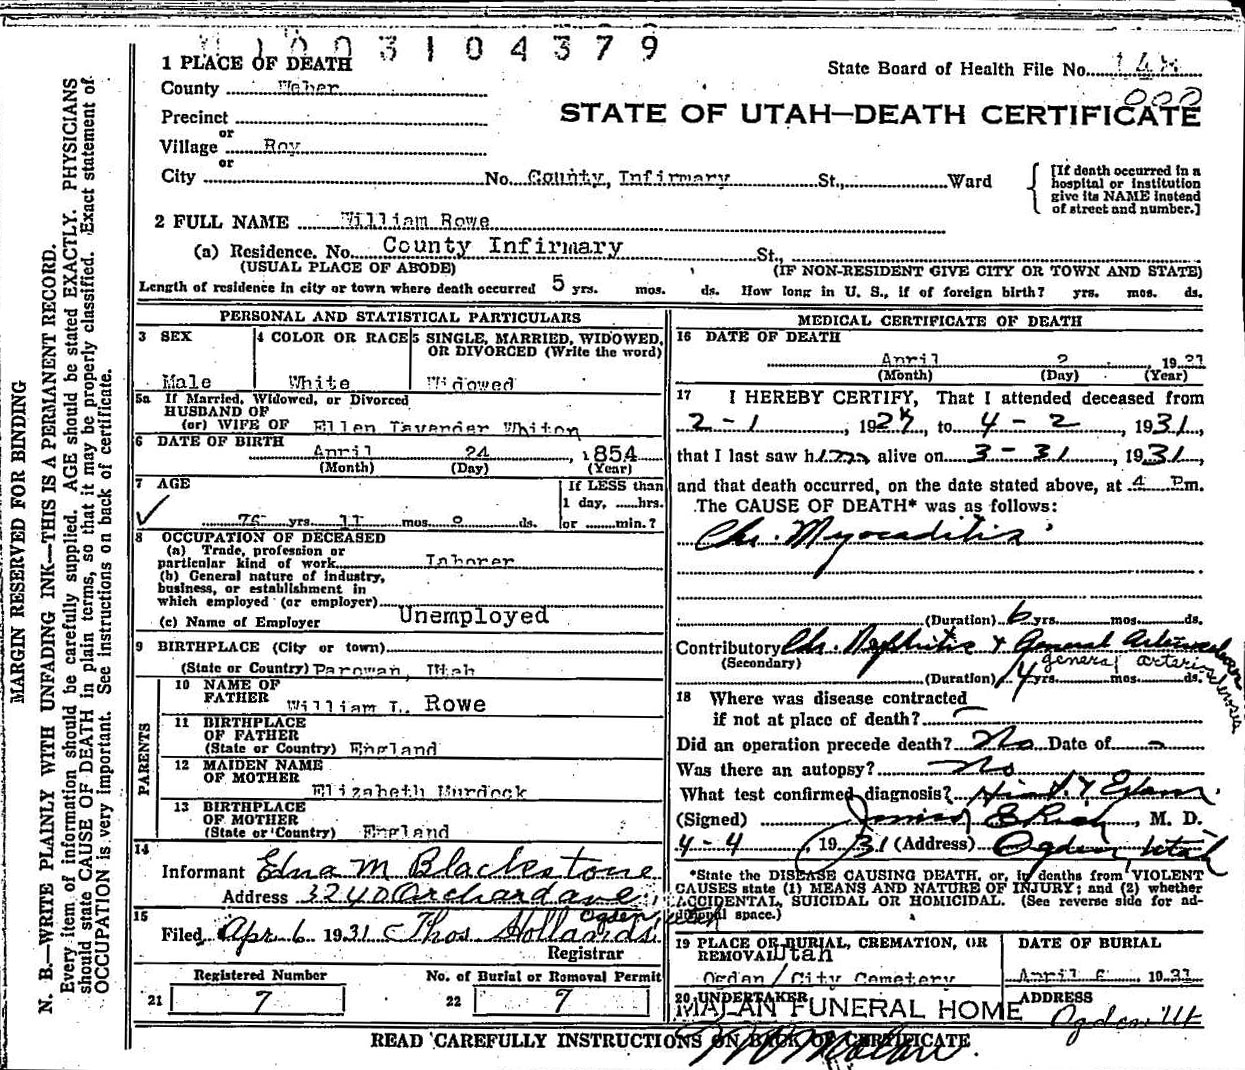 1003104379
1 PLACE OF DEATH
State Board of Health File No.
County Weber
000
STATE OF UTAH—DEATH CERTIFICATE
Precinct
or
Village Roy
or
City No. County, Infirmary St., Ward
[If death occurred in a
hospital or institution
give its NAME instead
of street and number.]
2 FULL NAME William Rowe
(a) Residence. No. County Infirmary St.,
(USUAL PLACE OF ABODE) (IF NON-RESIDENT GIVE CITY OR TOWN AND STATE)
Length of residence in city or town where death occurred 5 yrs. mos. ds. How long in U. S., if of foreign birth? yrs. mos. ds.
PERSONAL AND STATISTICAL PARTICULARS
3 SEX
Male
4 COLOR OR RACE
White
5 SINGLE, MARRIED, WIDOWED,
OR DIVORCED (Write the word)
Widowed
5a If Married, Widowed, or Divorced
HUSBAND OF
(or) WIFE OF Ellen Lavender Whiton
6 DATE OF BIRTH
April 24, 1854
(Month) (Day) (Year)
7 AGE
76 yrs. 11 mos. ds.
If LESS than
1 day, hrs.
or min.?
8 OCCUPATION OF DECEASED
(a) Trade, profession or
particular kind of work Laborer
(b) General nature of industry,
business, or establishment in
which employed (or employer)
(c) Name of Employer Unemployed
9 BIRTHPLACE (City or town)
(State or Country) Parowan, Utah
PARENTS
10 NAME OF
FATHER William L. Rowe
11 BIRTHPLACE
OF FATHER
(State or Country) England
12 MAIDEN NAME
OF MOTHER
Elizabeth Murdock
13 BIRTHPLACE
OF MOTHER
(State or Country) England
14
Informant Edna M Blackstone
Address 3240 Orchard ave
Ogden, Utah
15
Filed Apr 6 1931 Thos Hollands
Registrar
Registered Number
21 7
No. of Burial or Removal Permit
22 7
MEDICAL CERTIFICATE OF DEATH
16 DATE OF DEATH
April 2, 1931
(Month) (Day) (Year)
17 I HEREBY CERTIFY, That I attended deceased from
2-1, 192, to 4-2, 1931,
that I last saw him alive on 3-31, 1931,
and that death occurred, on the date stated above, at 4 Pm.
The CAUSE OF DEATH* was as follows:
Chr. Myocaditis
(Duration) 6 yrs. mos. ds.
Contributory Chr. Nephritis & General Arteriosclerosis
(Secondary) general arteriosclerosis
(Duration) 4 yrs. mos. ds.
18 Where was disease contracted
if not at place of death? —
Did an operation precede death? No Date of -
Was there an autopsy? No
What test confirmed diagnosis? Hist. & Exam.
(Signed) E Rich, M. D.
4-4, 1931 (Address) Ogden, Utah
*State the DISEASE CAUSING DEATH, or, in deaths from VIOLENT
CAUSES state (1) MEANS AND NATURE OF INJURY; and (2) whether
ACCIDENTAL, SUICIDAL OR HOMICIDAL. (See reverse side for ad-
ditional space.)
19 PLACE OF BURIAL, CREMATION, OR
REMOVAL Utah
Ogden/City Cemetery
DATE OF BURIAL
April 6, 1931
20 UNDERTAKER
MALAN FUNERAL HOME
ADDRESS
Ogden Ut
READ CAREFULLY INSTRUCTIONS ON BACK OF CERTIFICATE
MARGIN RESERVED FOR BINDING
N. B.—WRITE PLAINLY WITH UNFADING INK—THIS IS A PERMANENT RECORD.
Every item of information should be carefully supplied. AGE should be stated EXACTLY. PHYSICIANS
should state CAUSE OF DEATH in plain terms, so that it may be properly classified. Exact statement of
OCCUPATION is very important. See instructions on back of certificate.